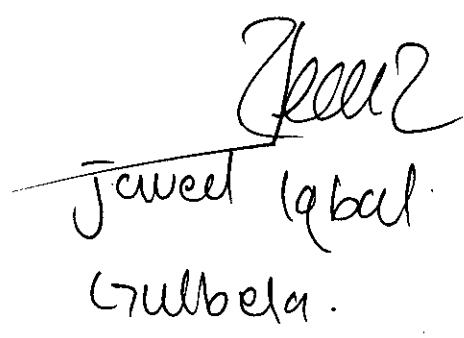 Javed Iqbal.
Gulbela.